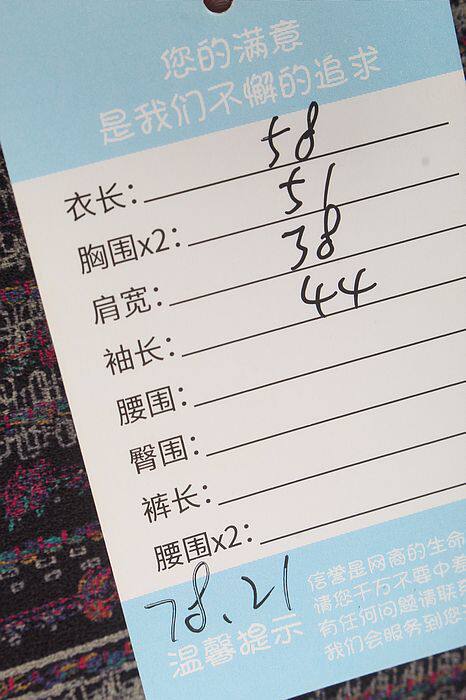 您的满意
是我们不懈的追求
衣长: 58
胸围x2: 51
肩宽: 38
袖长: 44
腰围:
臀围:
裤长:
腰围x2:
78.21
温馨提示
信誉是网商的生命
请您千万不要中差
有任何问题请联系
我们会服务到您